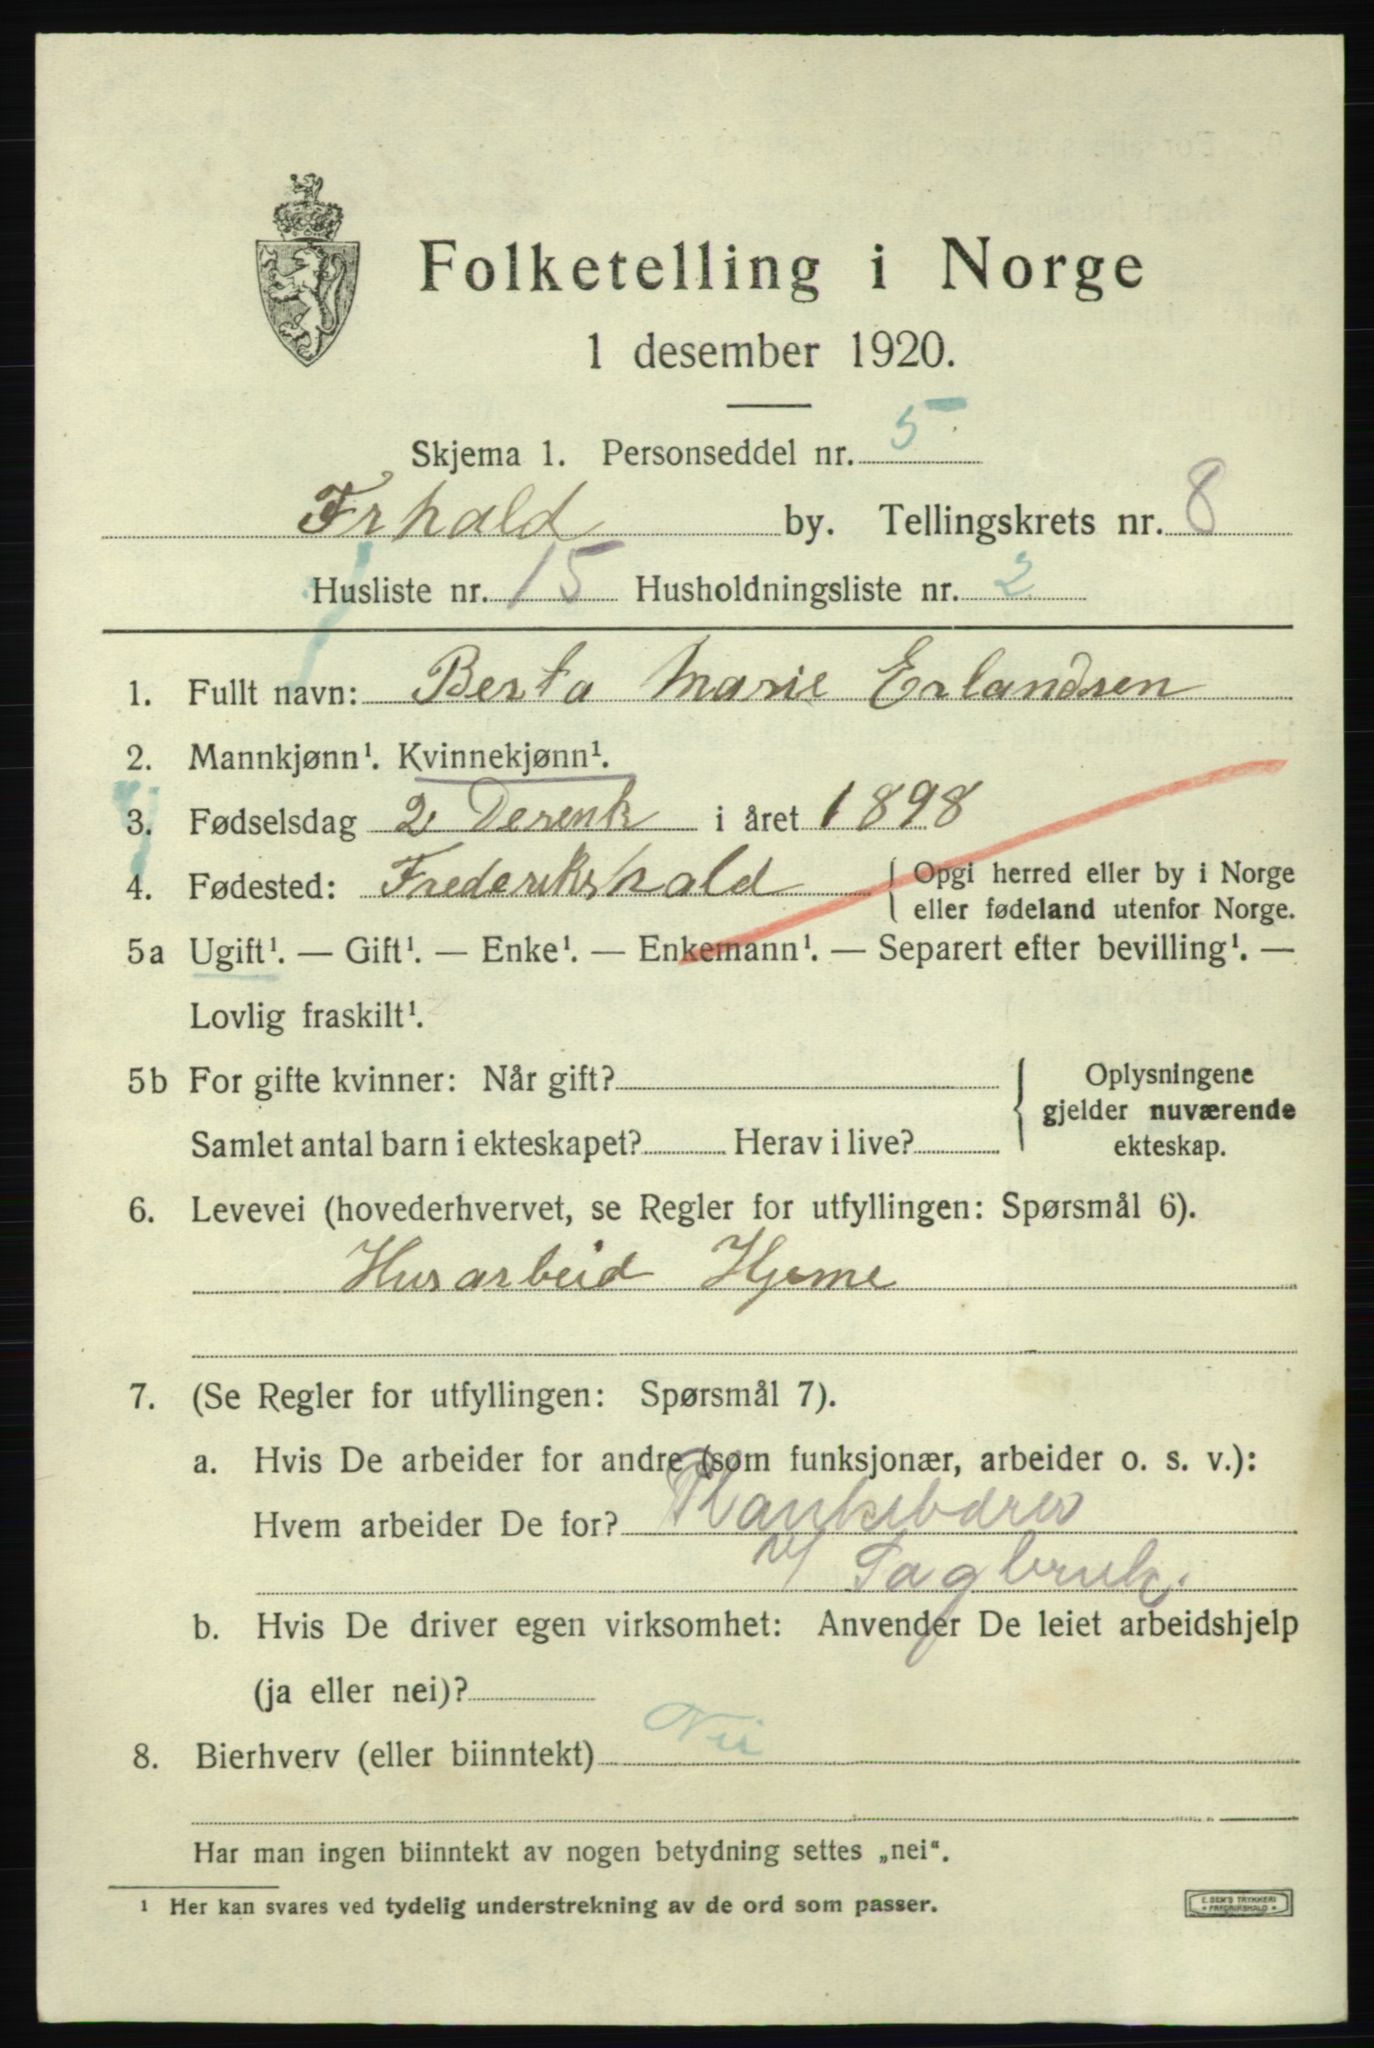 Folketelling i Norge
1 desember 1920.
Skjema 1. Personseddel nr. 5
Frhald by. Tellingskrets nr. 8
Husliste nr. 15 Husholdningsliste nr. 2
1. Fullt navn: Berta Marie Erlandsen
2. Mannkjønn¹. Kvinnekjønn¹.
3. Fødselsdag 2 i året 1898
4. Fødested: Frederikshald { Opgi herred eller by i Norge
eller fødeland utenfor Norge.
5a Ugift¹. — Gift¹. — Enke¹. — Enkemann¹. — Separert efter bevilling¹. —
Lovlig fraskilt¹.
5b For gifte kvinner: Når gift? { Oplysningene
gjelder nuværende
Samlet antal barn i ekteskapet? Herav i live? ekteskap.
6. Levevei (hovederhvervet, se Regler for utfyllingen: Spørsmål 6).
Husarbeid Hjeme
7. (Se Regler for utfyllingen: Spørsmål 7).
a. Hvis De arbeider for andre (som funksjonær, arbeider o. s. v.):
Hvem arbeider De for? Plankebærer
v/ Sagbruk.
b. Hvis De driver egen virksomhet: Anvender De leiet arbeidshjelp
(ja eller nei)?
8. Bierhverv (eller biinntekt) Nei
Har man ingen biinntekt av nogen betydning settes „nei“.
¹ Her kan svares ved tydelig understrekning av de ord som passer.
E. SEM'S TRYKKERI
* FREDRIKSHALD *